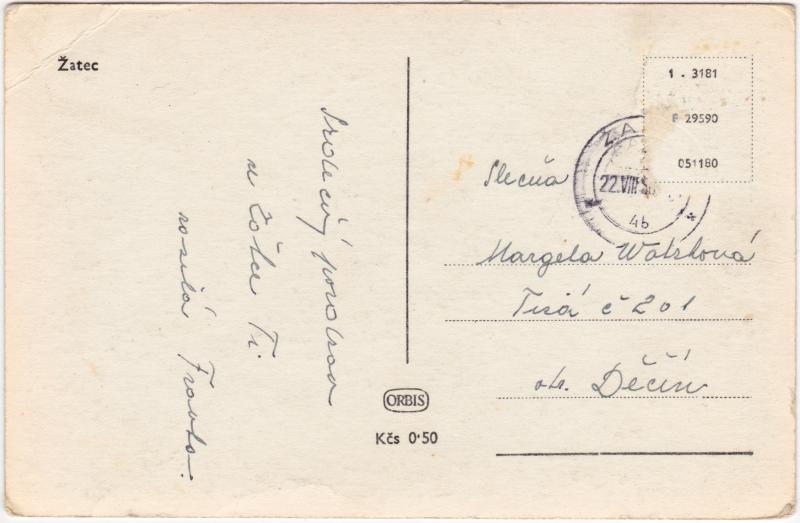 Žatec
Srdečný pozdrav
u Žatce Ti
posílá Franta.
ORBIS
Kčs 0·50
1 - 3181
F 29590
051180
22.VIII
4b
Slečna
Margela
Tisá č 201
okr. Děčín